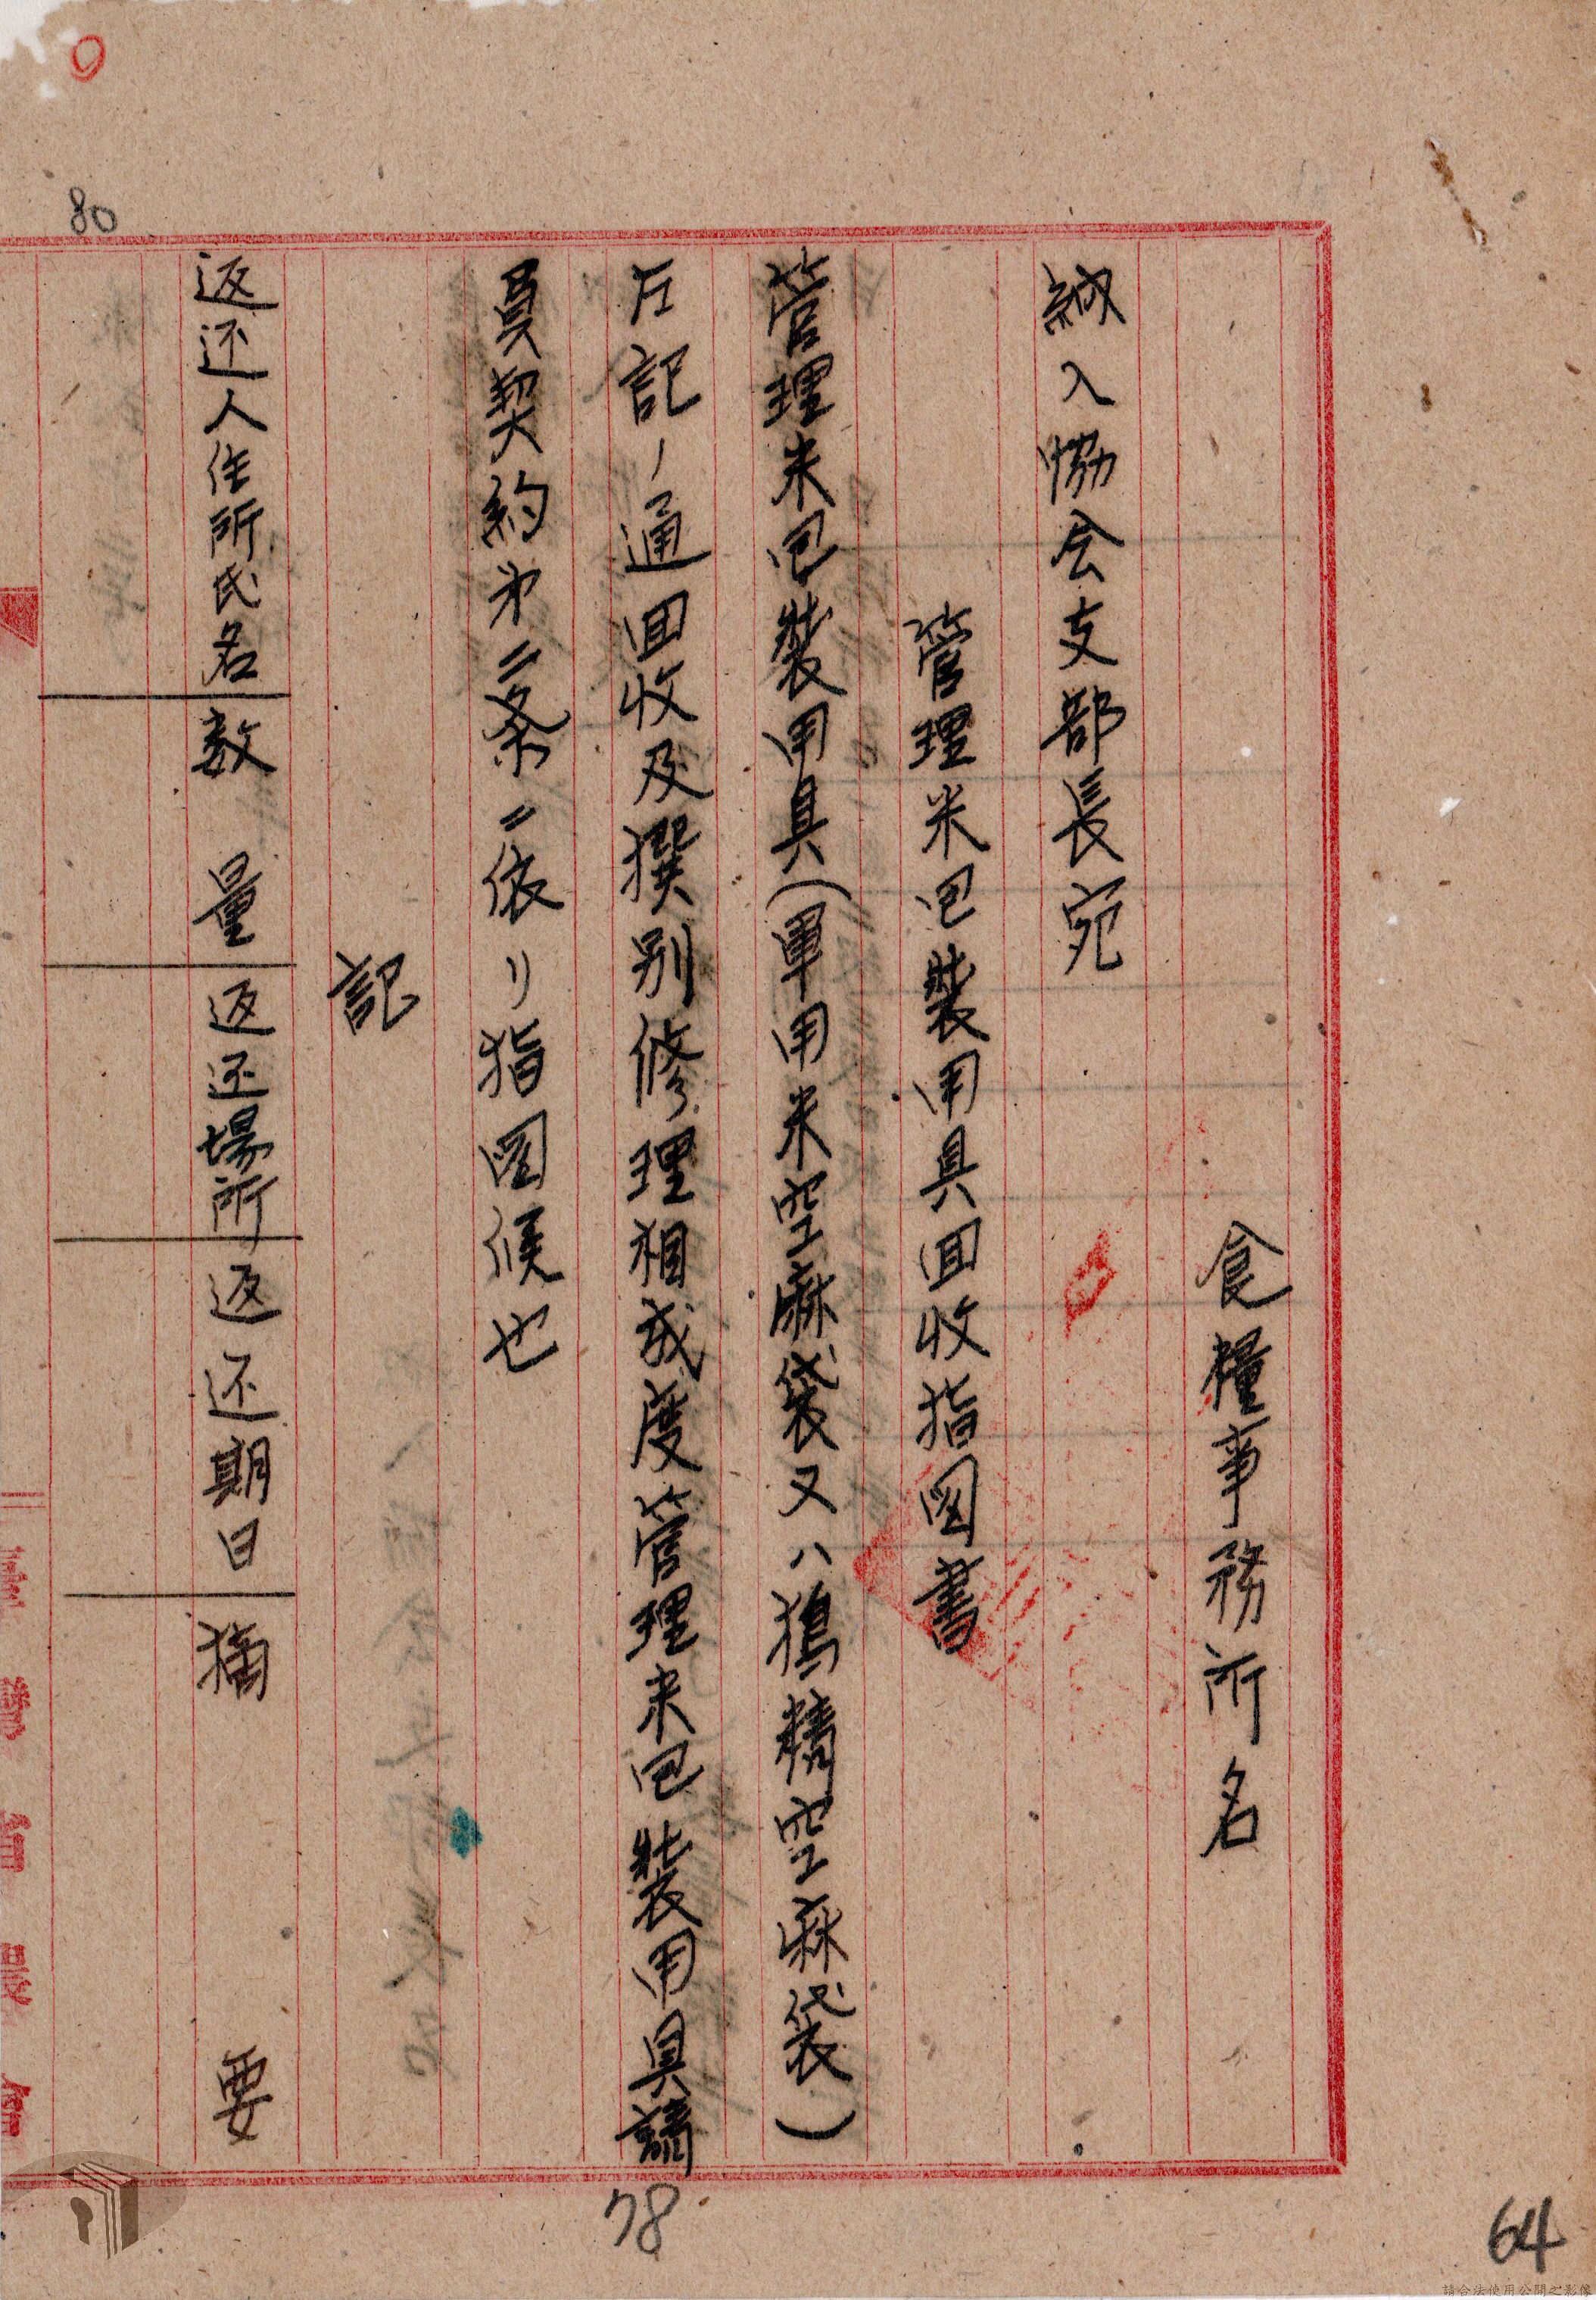 食糧事務所名
納入協会支部長宛
管理米包装用具回収指図書
管理米包装用具(軍用米空麻袋又ハ搗精空麻袋)
左記ノ通回収及撰別修理相成度管理米包装用具請
負契約第二条ニ依リ指図候也
記
返还人住所氏名
数量
返还場所
返还期日
摘要
80
78
64
請合法使用公開之影像